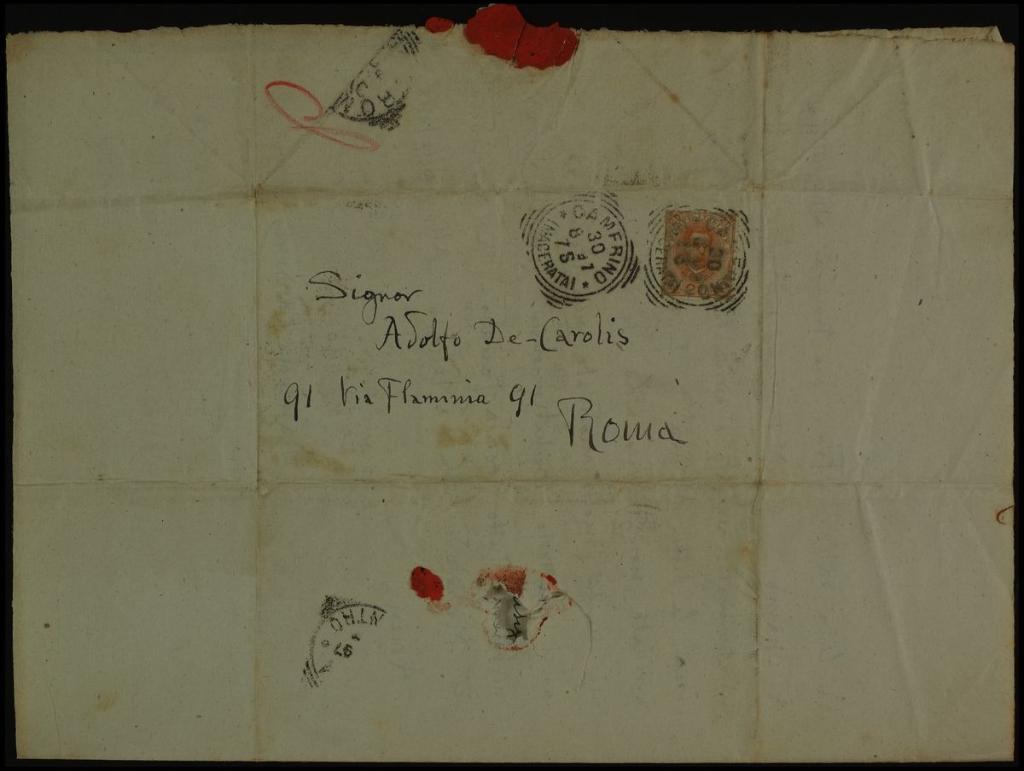 CAMERINO
30
8 - 7
7S
(MACERATA)
Signor
Adolfo De-Carolis
91 Via Flaminia 91
Roma
NTRO
97